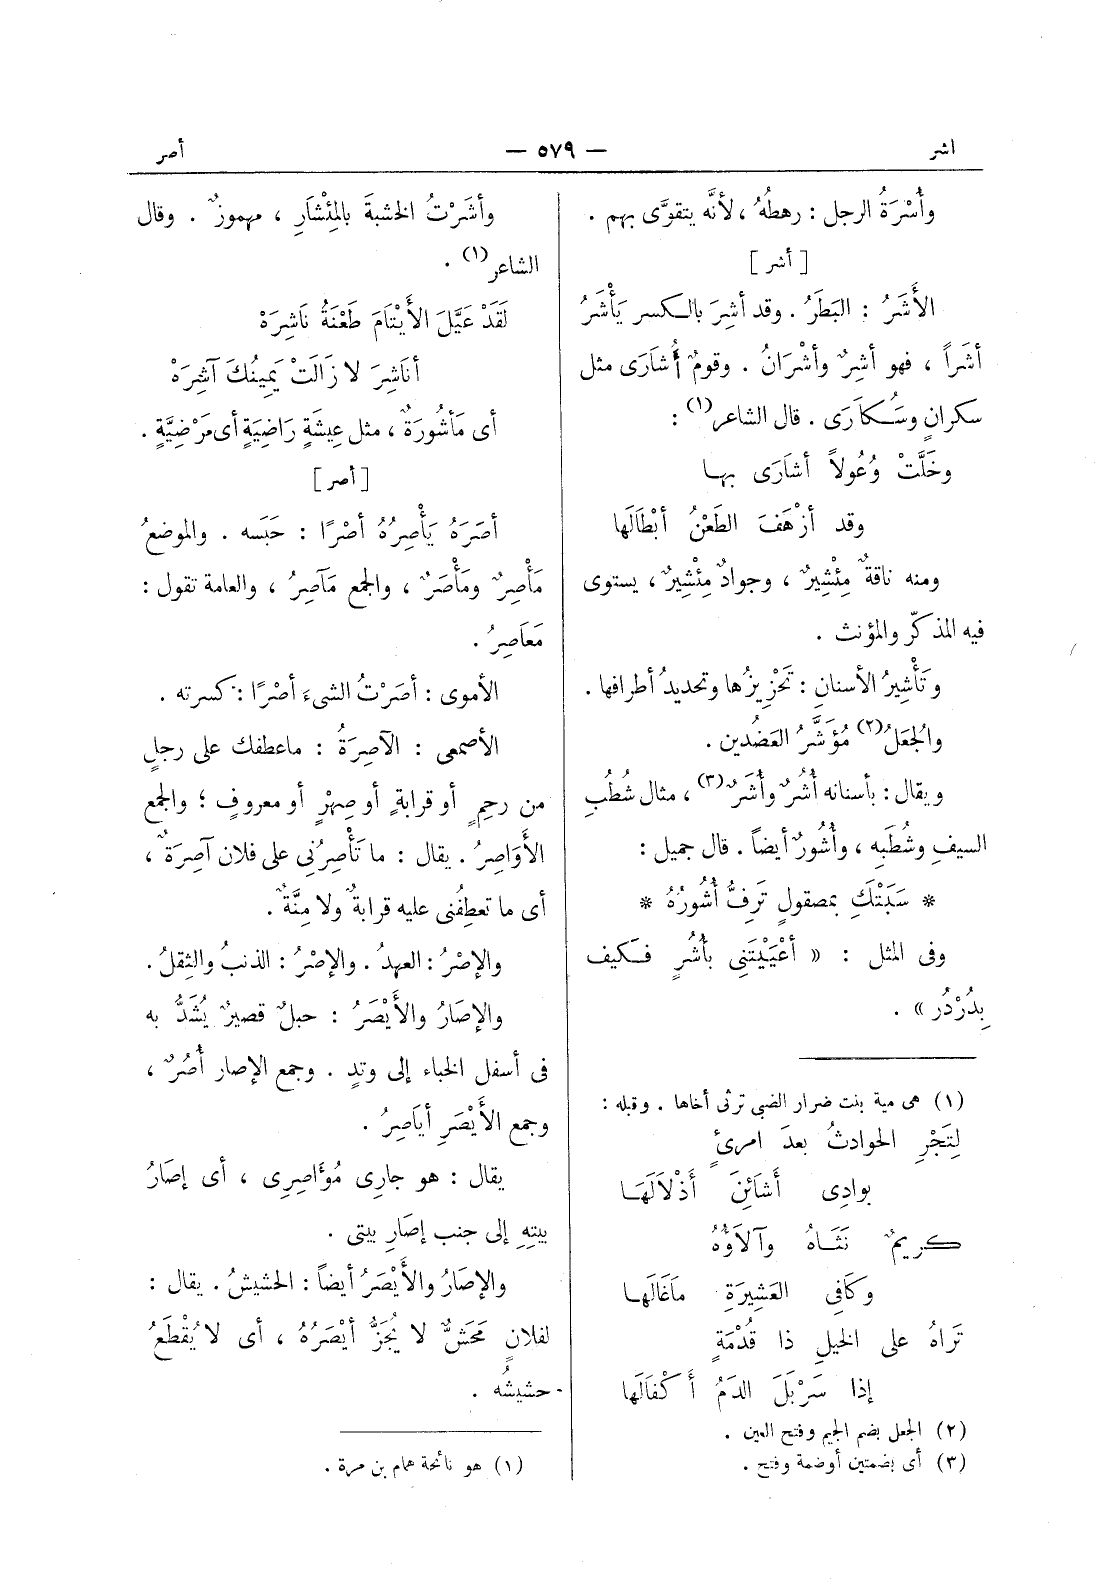 اشر
— ٥٧٩ —
أصر
وأُسْرَةُ الرجل : رهطهُ ، لأنَّه يتقوَّى بهم .
[ أشر ]
الأَشَرُ : البَطَرُ . وقد أشِرَ بالكسر يَأْشَرُ
أشَراً ، فهو أشِرٌ وأشْرَانُ . وقومٌ أُشَارَى مثل
سكرانٍ وسُكارَى . قال الشاعر(١) :
وخَلَّتْ وُعُولاً أشارَى بها
وقد أزْهَفَ الطَعْنُ أبْطَالَها
ومنه ناقةٌ مِئْشِيرٌ ، وجوادٌ مِئْشِيرٌ ، يستوى
فيه المذكّر والمؤنث .
وتَأْشِيرُ الأسنانِ : تَحْزِيزُها وتحديدُ أطرافها .
والجُعَلُ(٢) مُؤَشَّرُ العَضُدين .
ويقال : بأسنانه أُشُرٌ وأُشَرٌ(٣) ، مثال شُطُبِ
السيفِ وشُطَبِه ، وأُشُورٌ أيضاً . قال جميل :
* سَبَتْكَ بمصقولٍ تَرِفُّ أُشُورُهُ *
وفى المثل : « أعْيَيْتَنِى بأُشُرٍ فكيف
بِدُرْدُرٍ » .
(١) هى مية بنت ضرار الضبي ترثى أخاها . وقبله :
لِتَجْرِ الحوادثُ بعدَ امرئٍ
بوادِى أَشَائِنَ أَذْلَالَها
كريمٌ نَثَاهُ وآلاَؤُهُ
وكَافِى العَشِيرَةِ مَاغَالَها
تَرَاهُ على الخيلِ ذا قُدْمَةٍ
إذا سَرْبَلَ الدَمُ أكْفَالَها
(٢) الجعل بضم الجيم وفتح العين .
(٣) أى بضمتين أوضمة وفتح .
وأشَرْتُ الخشبةَ بالمِئْشَارِ ، مهموزٌ . وقال
الشاعر(١) .
لَقَدْ عَيَّلَ الأَيْتَامَ طَعْنَةُ نَاشِرَهْ
أنَاشِرَ لا زَالَتْ يَمِينُكَ آشِرَهْ
أى مَأشُورَةٌ ، مثل عِيشَةٍ رَاضِيَةٍ أى مَرْضِيَّةٍ .
[ أصر ]
أصَرَهُ يَأْصِرُهُ أصْرًا : حَبَسه . والموضعُ
مَأْصِرٌ ومَأْصَرٌ ، والجمع مَآصِرُ ، والعامة تقول :
مَعَاصِرُ .
الأموى : أصَرْتُ الشىءَ أصْرًا : كسرته .
الأصمعى : الآصِرَةُ : ماعطفك على رجلٍ
من رحِمٍ أو قرابةٍ أو صِهْرٍ أو معروفٍ ؛ والجمع
الأَوَاصِرُ . يقال : ما تَأْصِرُنِى على فلان آصِرَةٌ ،
أى ما تعطِفُنى عليه قرابةٌ ولا مِنَّةٌ .
والإصْرُ : العهدُ . والإصْرُ : الذنبُ والثِقلُ .
والإصَارُ والأَيْصَرُ : حبلٌ قصيرٌ يُشَدُّ به
فى أسفل الخباء إلى وتدٍ . وجمع الإصار أُصُرٌ ،
وجمع الأَيْصَرِ أيَاصِرُ .
يقال : هو جارِى مُؤَاصِرِى ، أى إصَارُ
بيتِهِ إلى جنب إصَارِ بيتى .
والإصَارُ والأَيْصَرُ أيضاً : الحشيشُ . يقال :
لفلانٍ مَحَشٌّ لا يُجَزُّ أيْصَرُهُ ، أى لا يُقْطَعُ
حشيشُه .
(١) هو نائحة همام بن مرة .